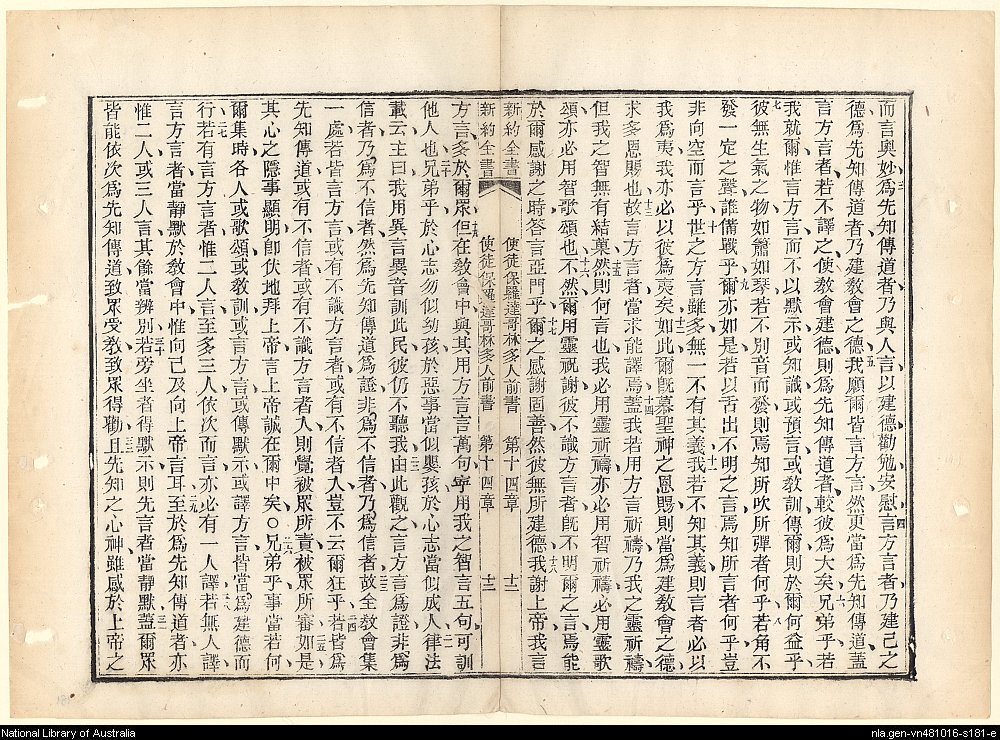 而言奧妙三爲先知傳道者乃與人言以建德勸勉安慰四言方言者乃建己之
德爲先知傳道者乃建教會之德五我願爾皆言方言然更當爲先知傳道蓋
言方言者若不譯之使教會建德則爲先知傳道者較彼爲大矣六兄弟乎若
我就爾惟言方言而不以默示或知識或預言或教訓傳爾則於爾何益乎
七彼無生氣之物如簫如琴若不別音而發則焉知所吹所彈者何乎八若角不
發一定之聲誰備戰乎九爾亦如是若以舌出不明之言焉知所言者何乎豈
非向空而言乎十世之方言雖多無一不有其義十一我若不知其義則言者必以
我爲夷我亦必以彼爲夷矣十二如此爾既慕聖神之恩賜則當爲建教會之德
求多恩賜也十三故言方言者當求能譯焉十四蓋我若用方言祈禱乃我之靈祈禱
但我之智無有結菓十五然則何言也我必用靈祈禱亦必用智祈禱必用靈歌
頌亦必用智歌頌也十六不然爾用靈祝謝彼不識方言者既不明爾之言焉能
於爾感謝之時答言亞門乎十七爾之感謝固善然彼無所建德十八我謝上帝我言
新約全書 使徒保羅達哥林多人前書 第十四章 十二
新約全書 使徒保羅達哥林多人前書 第十四章 十二
方言多於爾眾十九但在教會中與其用方言言萬句寧用我之智言五句可訓
他人也二十兄弟乎於心志勿似幼孩於惡事當似嬰孩於心志當似成人二一律法
載云主曰我用異言異音訓此民彼仍不聽我二二由此觀之言方言爲證非爲
信者乃爲不信者然爲先知傳道爲證非爲不信者乃爲信者二三故全教會集
一處若皆言方言或有不識方言者或有不信者入豈不云爾狂乎二四若皆爲
先知傳道或有不信者或有不識方言者入則覺被眾所責被眾所審二五如是
其心之隱事顯明卽伏地拜上帝言上帝誠在爾中矣○二六兄弟乎事當若何
爾集時各人或歌頌或教訓或言方言或傳默示或譯方言皆當爲建德而
行二七若有言方言者惟二人言至多三人依次而言亦必有一人譯二八若無人譯
言方言者當靜默於教會中惟向己及向上帝言耳二九至於爲先知傳道者亦
惟二人或三人言其餘當辨別三十若旁坐者得默示則先言者當靜默三一蓋爾眾
皆能依次爲先知傳道致眾受教致眾得勸三二且先知之心神雖感於上帝之
National Library of Australia
nla.gen-vn481016-s181-e